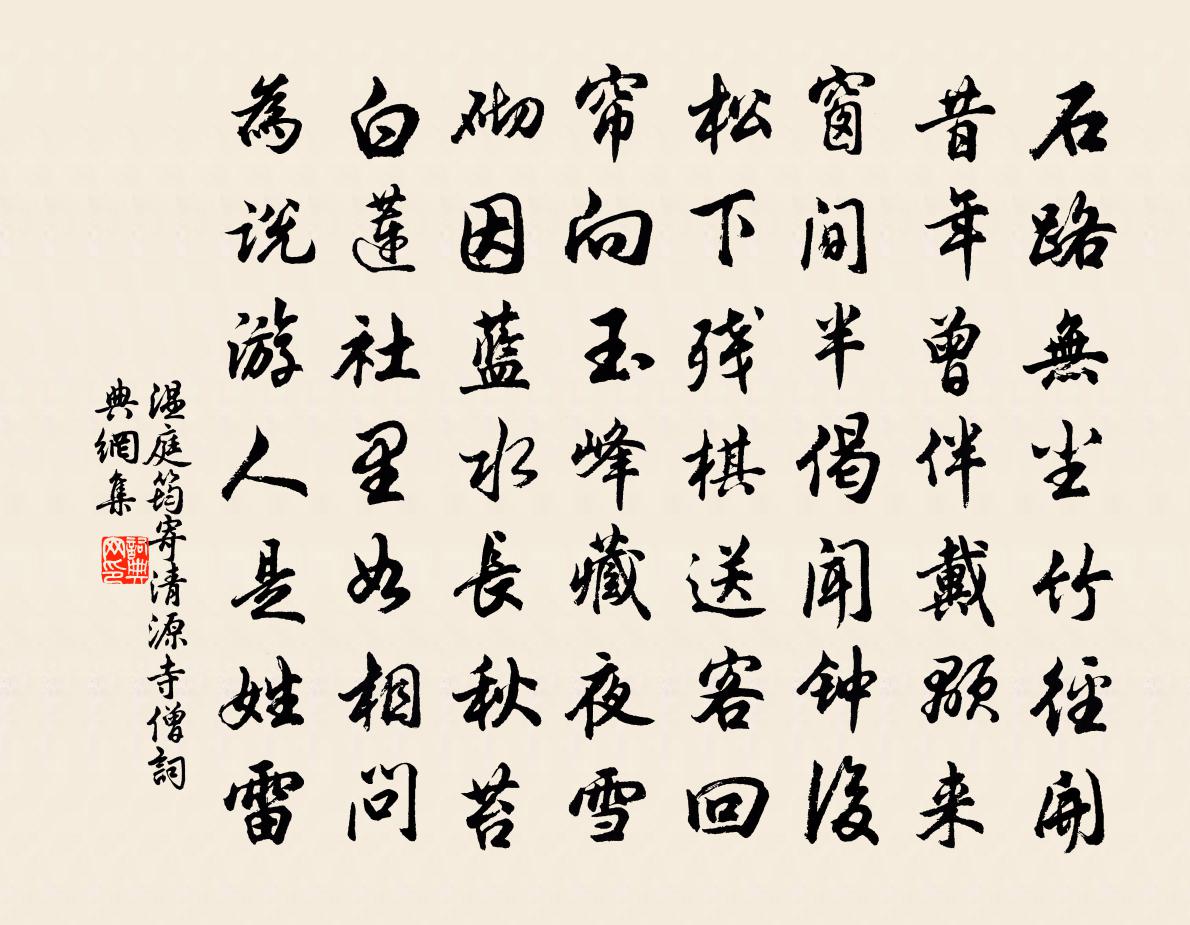 石路無尘竹徑開
昔年曾伴戴顒来
窗间半偈闻钟後
松下残棋送客回
帘向玉峰藏夜雪
砌因藍水長秋苔
白蓮社里如相问
為说游人是姓雷
温庭筠寄清源寺僧詞
典網集
詞典
网印